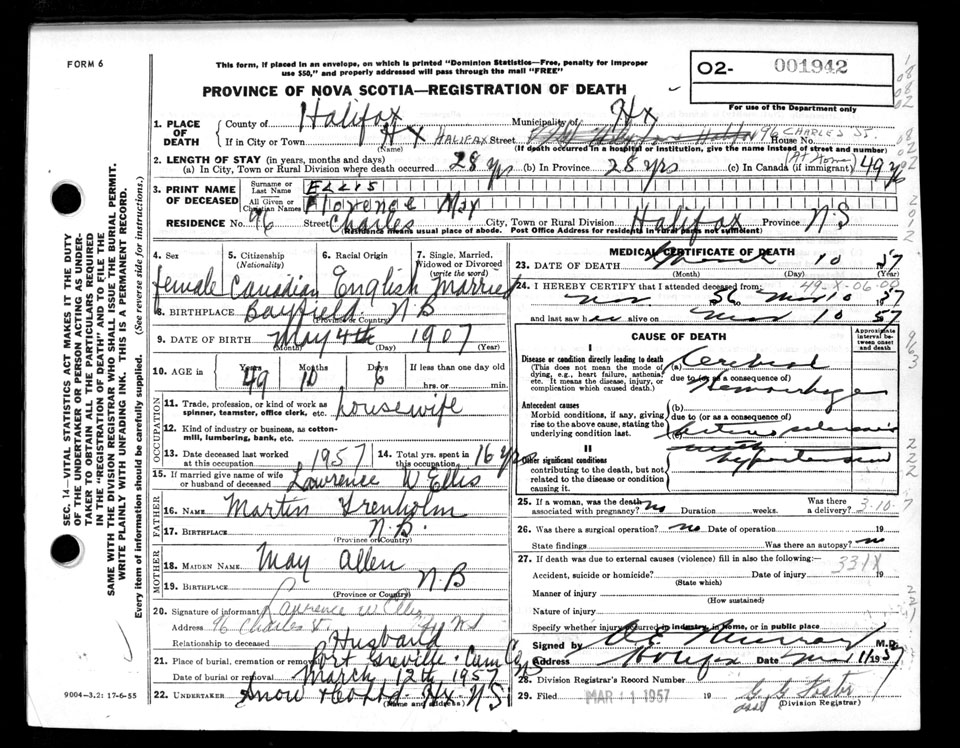 FORM 6
This form, if placed in an envelope, on which is printed "Dominion Statistics—Free, penalty for improper
use $50," and properly addressed will pass through the mail "FREE"
02- 001942
For use of the Department only
PROVINCE OF NOVA SCOTIA—REGISTRATION OF DEATH
1. PLACE OF DEATH
County of Halifax Municipality of Hx
If in City or Town Hx HALIFAX Street House No. 96 CHARLES ST.
(Name) (If death occurred in a hospital or institution, give the name instead of street and number)
2. LENGTH OF STAY (in years, months and days) (At Home)
(a) In City, Town or Rural Division where death occurred 28 yrs (b) In Province 28 yrs (c) In Canada (if immigrant) 49 yrs
3. PRINT NAME OF DECEASED
Surname or Last Name ELLIS
All Given or Christian Names Florence May
RESIDENCE No. 96 Street Charles City, Town or Rural Division Halifax Province N.S
(Residence means usual place of abode. Post Office Address for residents in rural parts not sufficient)
4. Sex female
5. Citizenship (Nationality) Canadian
6. Racial Origin English
7. Single, Married, Widowed or Divorced (write the word) Married
8. BIRTHPLACE Bayfield N.B
(Province or Country)
9. DATE OF BIRTH May 4th 1907
(Month) (Day) (Year)
10. AGE in Years 49 Months 10 Days 6 If less than one day old
hrs. or min.
OCCUPATION
11. Trade, profession, or kind of work as spinner, teamster, office clerk, etc. housewife
12. Kind of industry or business, as cotton-mill, lumbering, bank, etc.
13. Date deceased last worked at this occupation 1957 14. Total yrs. spent in this occupation 16 yrs
15. If married give name of wife or husband of deceased Lawrence W Ellis
FATHER
16. NAME Martin Trenholm
17. BIRTHPLACE N.B.
(Province or Country)
MOTHER
18. MAIDEN NAME May Allen
19. BIRTHPLACE N.B
(Province or Country)
20. Signature of informant Lawrence W Ellis
Address 96 Charles St. Hx N.S
Relationship to deceased Husband
21. Place of burial, cremation or removal Port Greville Cum Co
Date of burial or removal March 12th 1957
22. UNDERTAKER Snow Co Ltd. Hx. N.S
(Name and address)
MEDICAL CERTIFICATE OF DEATH
23. DATE OF DEATH March 10 57
(Month) (Day) (Year)
24. I HEREBY CERTIFY that I attended deceased from: 49-X-06-00
Nov 56 Mar 10 1957
and last saw her alive on Mar 10 57
CAUSE OF DEATH
Approximate interval between onset and death
I
Disease or condition directly leading to death
(This does not mean the mode of dying, e.g., heart failure, asthenia, etc. It means the disease, injury, or complication which caused death.)
(a) Cerebral
due to (or as a consequence of)
Hemorrhage
Antecedent causes
Morbid conditions, if any, giving rise to the above cause, stating the underlying condition last.
(b)
due to (or as a consequence of)
(c) arterio sclerosis
II
Other significant conditions
contributing to the death, but not related to the disease or condition causing it.
with hypertension
25. If a woman, was the death associated with pregnancy? no Duration weeks. Was there a delivery? 3-10-7
26. Was there a surgical operation? no Date of operation 19
State findings Was there an autopsy? no
27. If death was due to external causes (violence) fill in also the following:—
331X
Accident, suicide or homicide? Date of injury 19
(State which)
Manner of injury
(How sustained)
Nature of injury
Specify whether injury occurred in industry, in home, or in public place
Signed by O.E. Murray M.D.
Address Halifax Date Mar 11/1957
28. Division Registrar's Record Number
29. Filed MAR 11 1957 19 G G Foster
(Division Registrar)
SEC. 14—VITAL STATISTICS ACT MAKES IT THE DUTY
OF THE UNDERTAKER OR PERSON ACTING AS UNDER-
TAKER TO OBTAIN ALL THE PARTICULARS REQUIRED
IN THE "REGISTRATION OF DEATH" AND TO FILE THE
SAME WITH THE DIVISION REGISTRAR WHO SHALL ISSUE THE BURIAL PERMIT.
WRITE PLAINLY WITH UNFADING INK. THIS IS A PERMANENT RECORD.
Every item of information should be carefully supplied. (See reverse side for instructions.)
9004-3.2: 17-6-55